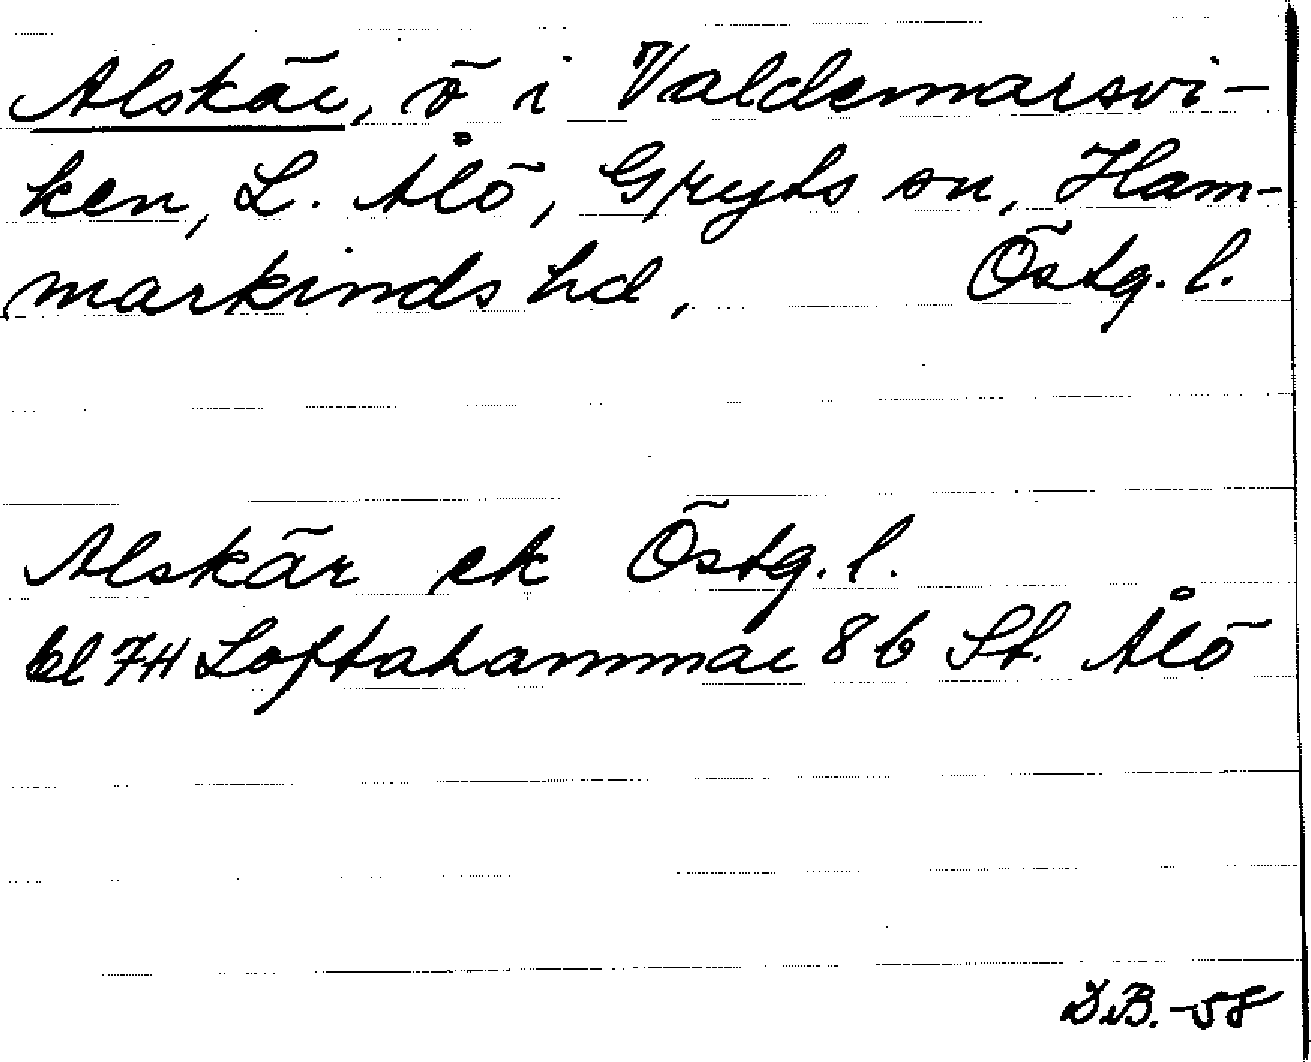 Alskär, ö i Valdemarsvi-
ken, L. Ålö, Gryts sn, Ham-
markinds hd, Östg. l.
Alskär ek Östg. l.
bl 7H Loftahammar 8b St. Ålö
D.B.-58